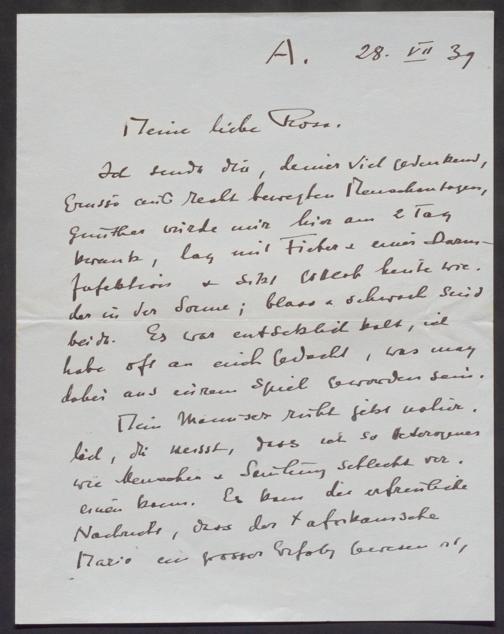 A. 28. VII 39
Meine liebe Rosa.
Ich sende dir, deiner viel gedenkend,
Grüsse aus recht bewegten Menschentagen,
Günther wurde mir hier am 2 Tag
krank, lag mit Fieber & einer Darm-
Infektion & sitzt heute wie-
der in der Sonne; blass & schwach sind
beide. Es war entsetzlich kalt, ich
habe oft an euch gedacht, was mag
dabei aus eurem Spiel geworden sein.
Mein Manuscr ruht jetzt natür-
lich, du weisst, dass ich so heterogenes
wie Menschen & schlecht ver-
einen kann. Es kam die erfreuliche
Nachricht, dass der afrikanische
Mario ein grosser Erfolg gewesen ist,